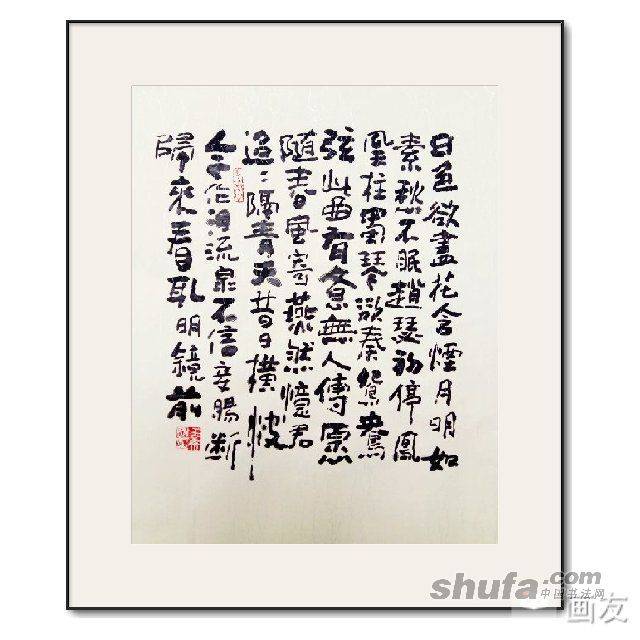 日色欲盡花含煙月明如
素愁不眠趙瑟初停鳳
凰柱蜀琴欲奏鴛鴦
弦此曲有意無人傳願
隨春風寄燕然憶君
迢〻隔青天昔日橫波
今作泪流泉不信妾腸斷
歸來看取明鏡前
shufa.com
中国书法网
画友